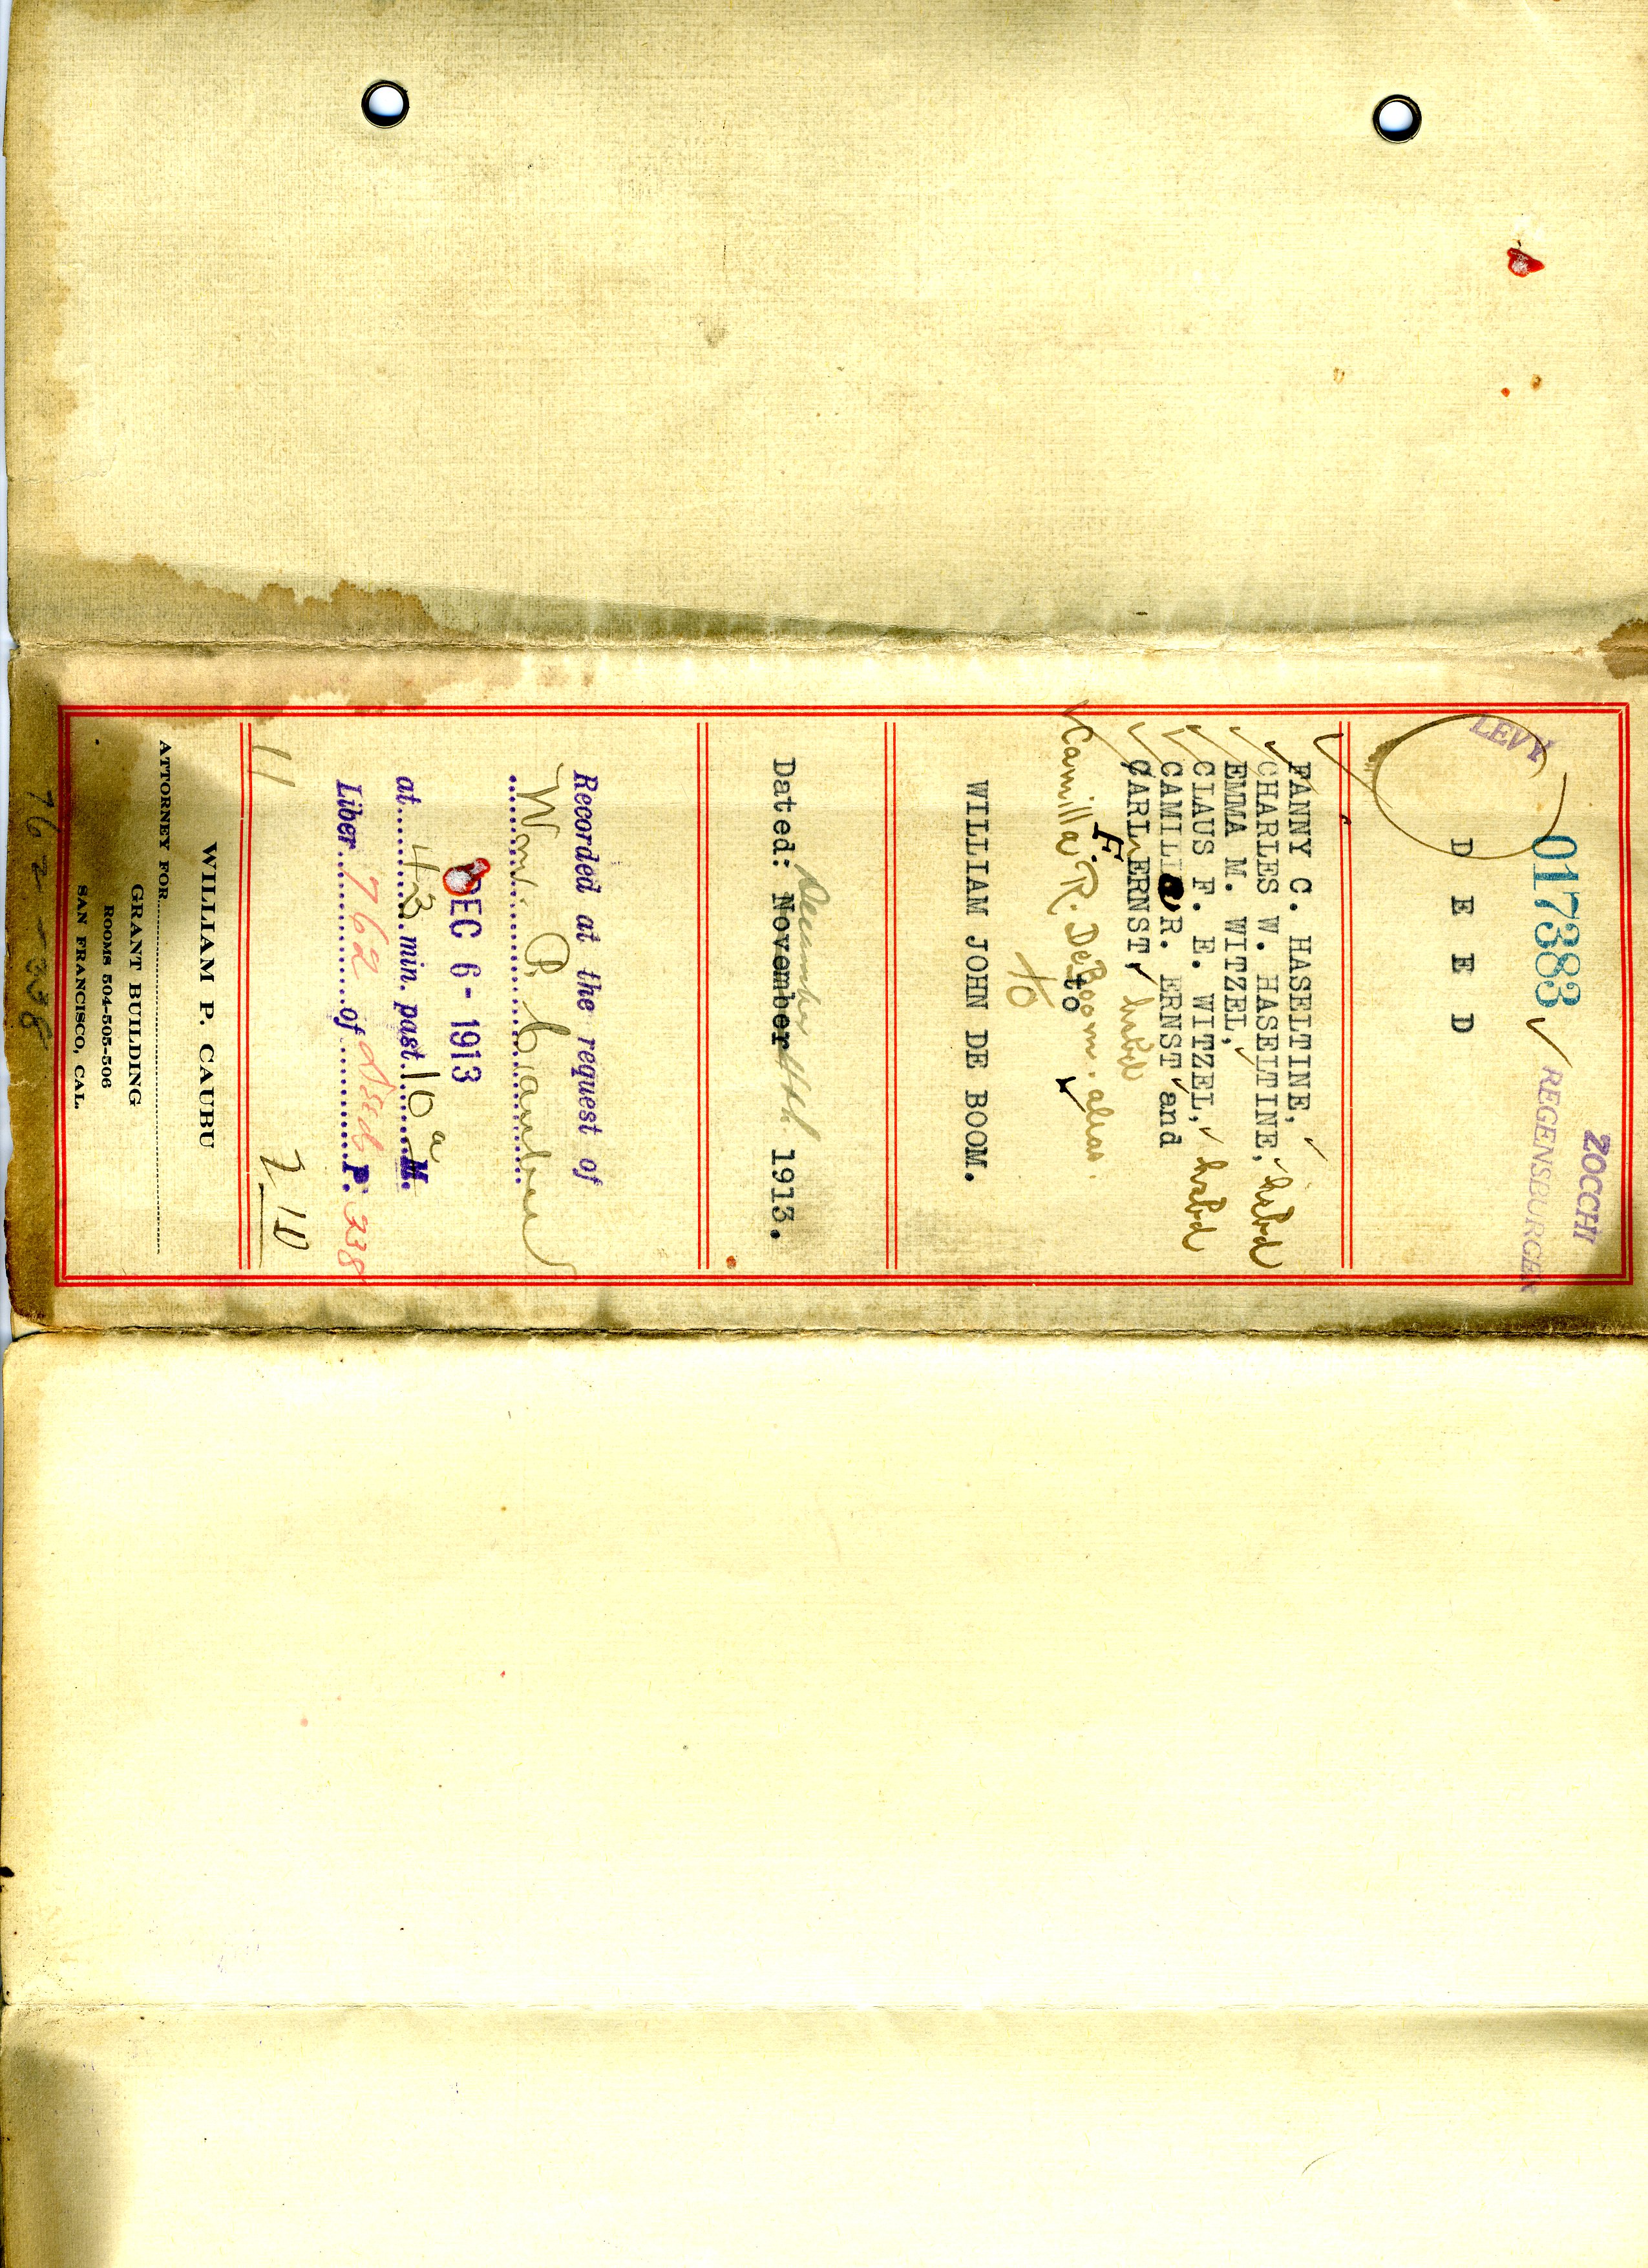 ZOCCHI
017383 ✓ REGENSBURGER
LEVY
D E E D
FANNY C. HASELTINE,
CHARLES W. HASELTINE, husbd
EMMA M. WITZEL,
CLAUS F. E. WITZEL, husbd
CAMILLA R. ERNST and
CARL F. ERNST, husbd
Camilla R. DeBoom. alias.
to
to
WILLIAM JOHN DE BOOM.
December
Dated: November 4th 1913.
Recorded at the request of
Wm. P. Caubu
DEC 6 - 1913
at 43 min. past 10 a M.
Liber 762 of Deeds P. 338
11 2 10
WILLIAM P. CAUBU
ATTORNEY FOR
GRANT BUILDING
ROOMS 504-505-506
SAN FRANCISCO, CAL.
762 - 338